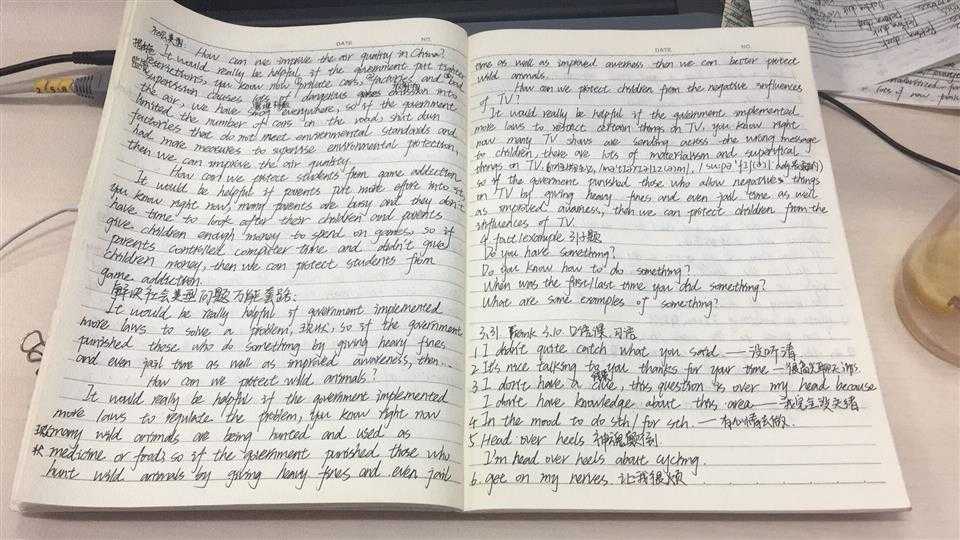 DATE NO.
How can we improve the air quality in China?
It would really be helpful if the government put tighter
restrictions, you know now private cars, factories and bad
supervision causes dangerous emission into
the air, we have smog everywhere, so if the government
limited the number of cars on the road, shut dun
factories that do not meet environmental standards and
had more measures to supervise environmental protection,
then we can improve the air quality.
How can we protect students from game addiction
It would be helpful if parents put more effort into it,
you know right now many parents are busy and they don't
have time to look after their children and parents
give children enough money to spend on games, so if
parents controlled computer time and didn't give
children money, then we can protect students from
game addiction.
解决社会类型问题万能套路:
It would be really helpful if government implemented
more laws to solve a problem, 现状, so if the government
punished those who do something by giving heavy fines
and even jail time as well as improved awareness, then...
How can we protect wild animals?
It would be really helpful if the government implemented
more laws to regulate the problem, you know right now
many wild animals are being hunted and used as
medicine or food, so if the government punished those who
hunt wild animals by giving heavy fines and even jail
DATE NO.
time as well as improved awreness then we can better protect
wild animals.
How can we protect children from the negative influences
of TV?
It would really be helpful if the government implemented
more laws to restrict certain things on TV, you know right
now many TV shows are sending across the wrong message
to children, there are lots of materialism and superfical
things on TV,
so if the goverment punished those who allow negative things
on TV by giving heavy fines and even jail time as well
as improved awarness, then we can protect children from the
influences of TV.
4 fact/example 引子题
Do you have something?
Do you know how to do something?
When was the first/last time you did something?
What are some examples of something?
3.31. Frank 3.10. 口语课. 习语
1 I didn't quite catch what you said —— 没听清
2 It's nice talking to you thanks for your time —
3 I don't have a clue, this question is over my head because
I don't have knowledge about this area —— 我完全没头绪
4 In the mood to do sth / for sth. —— 有心情去做.
5 Head over heels 神魂颠倒
I'm head over heels about cycling.
6. get on my nerves 让我很烦